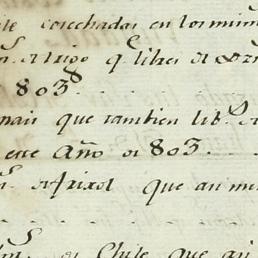 cosechadas en los mism
s. de trigo q.e libres de
803
mais que tambien lib.s d
este Año de 803.
s. de frixol que an m
s. de Chile que an